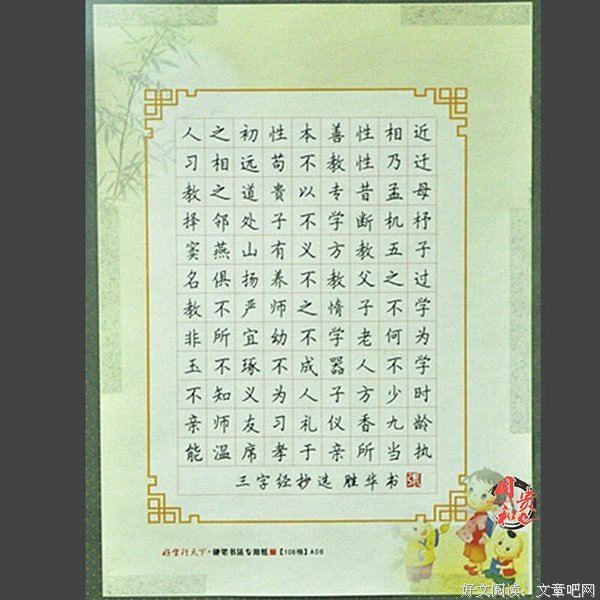 人之初性本善性相近
习相远苟不教性乃迁
教之道贵以专昔孟母
择邻处子不学断机杼
窦燕山有义方教五子
名俱扬养不教父之过
教不严师之惰子不学
非所宜幼不学老何为
玉不琢不成器人不学
不知义为人子方少时
亲师友习礼仪香九龄
能温席孝于亲所当执
三字经抄选 胜华书
好字行天下·硬笔书法专用纸【108格】A06
好文阅读：文章吧网